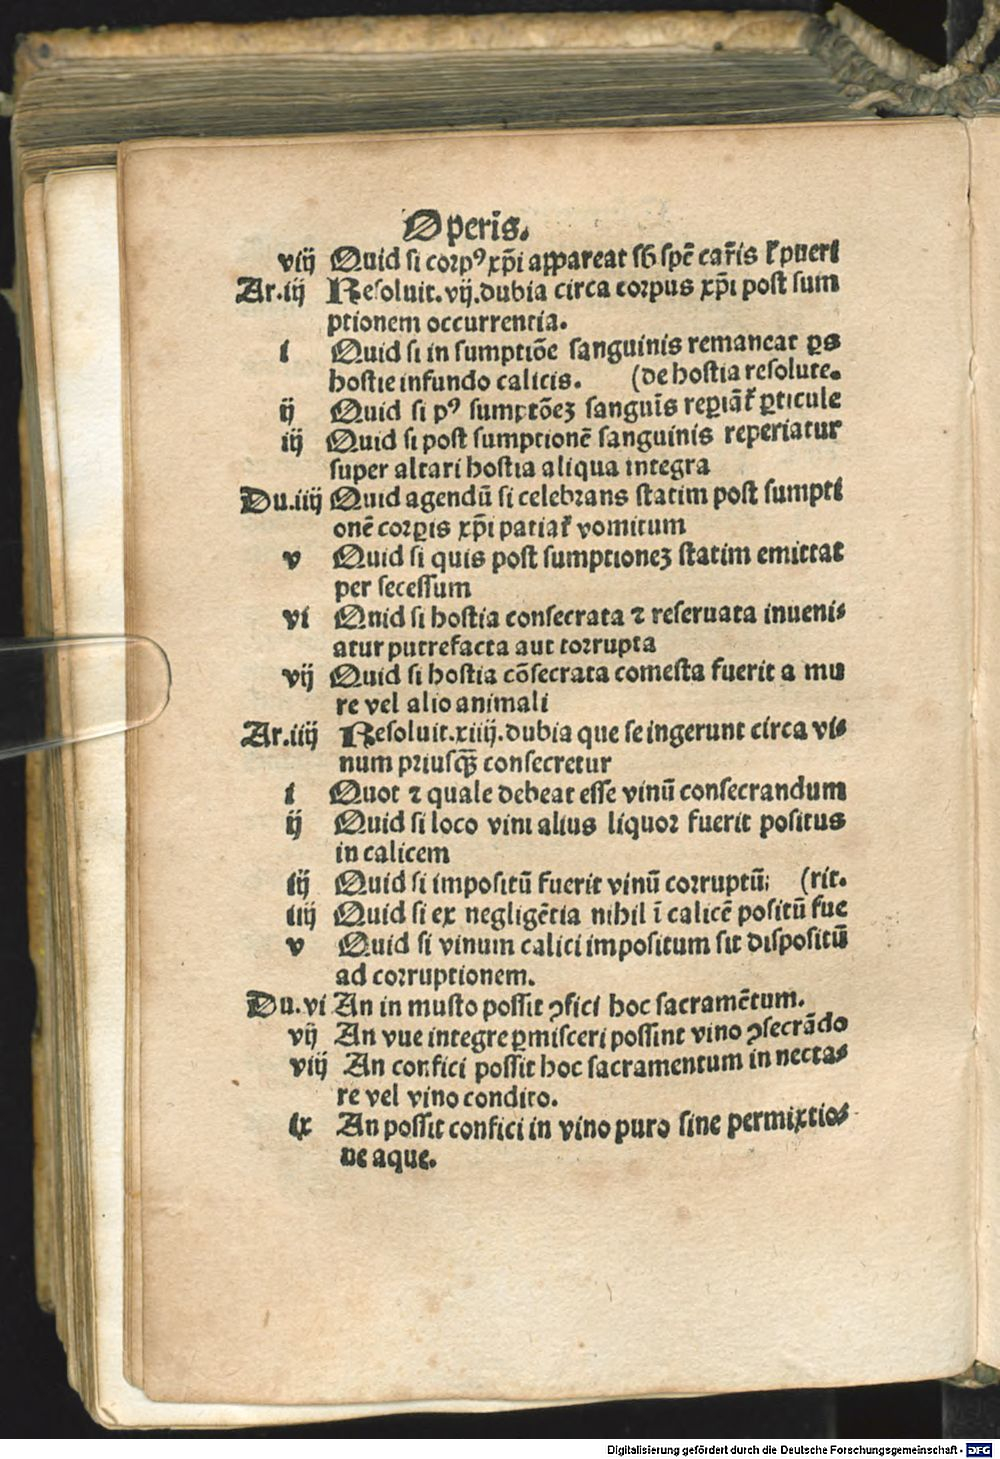 Operis.
viij Quid si corpꝰ xp̄i appareat sb̄ spē carnis ł pueri
Ar.iij Resoluit.vij.dubia circa corpus xp̄i post sum
ptionem occurrentia.
i Quid si in sumptiōe sanguinis remaneat ps
hostie infundo calicis. (de hostia resolute.
ij Quid si pꝰ sumptōeꝫ sanguīs reꝑiāt ꝑticule
iij Quid si post sumptionē sanguinis reperiatur
super altari hostia aliqua integra
Du.iiij Quid agendū si celebrans statim post sumpti
onē corꝑis xp̄i patiat vomitum
v Quid si quis post sumptioneꝫ statim emittat
per secessum
vi Qnid si hostia consecrata ⁊ reseruata inueni-
atur putrefacta aut corrupta
vij Quid si hostia cōsecrata comesta fuerit a mu
re vel alio animali
Ar.iiij Resoluit.xiiij.dubia que se ingerunt circa vi-
num priusꝙ̄ consecretur
i Quot ⁊ quale debeat esse vinū consecrandum
ij Quid si loco vini alius liquor fuerit positus
in calicem
iij Quid si impositū fuerit vinū corruptū; (rit.
iiij Quid si ex negligētia nihil ī calicē positū fue
v Quid si vinum calici impositum sit dispositū
ad corruptionem.
Du.vi An in musto possit ꝯfici hoc sacramētum.
vij An vue integre ꝑmisceri possint vino ꝯsecrādo
viij An confici possit hoc sacramentum in necta-
re vel vino condito.
ix An possit confici in vino puro sine permixtio-
ne aque.
Digitalisierung gefördert durch die Deutsche Forschungsgemeinschaft - DFG